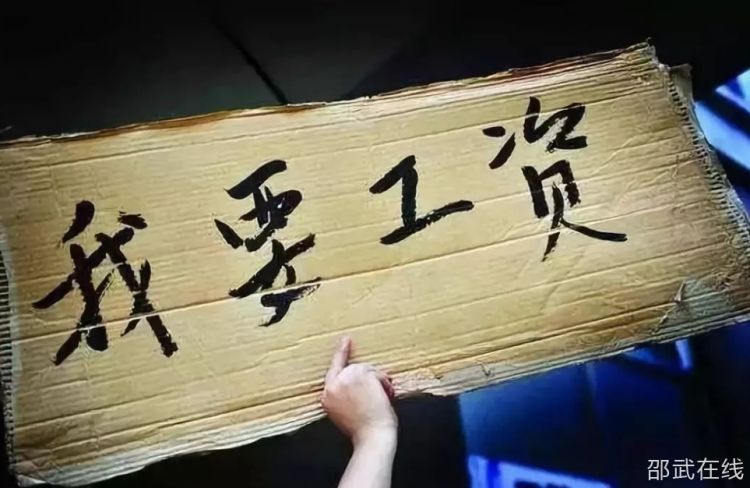 我要工资
邵武在线